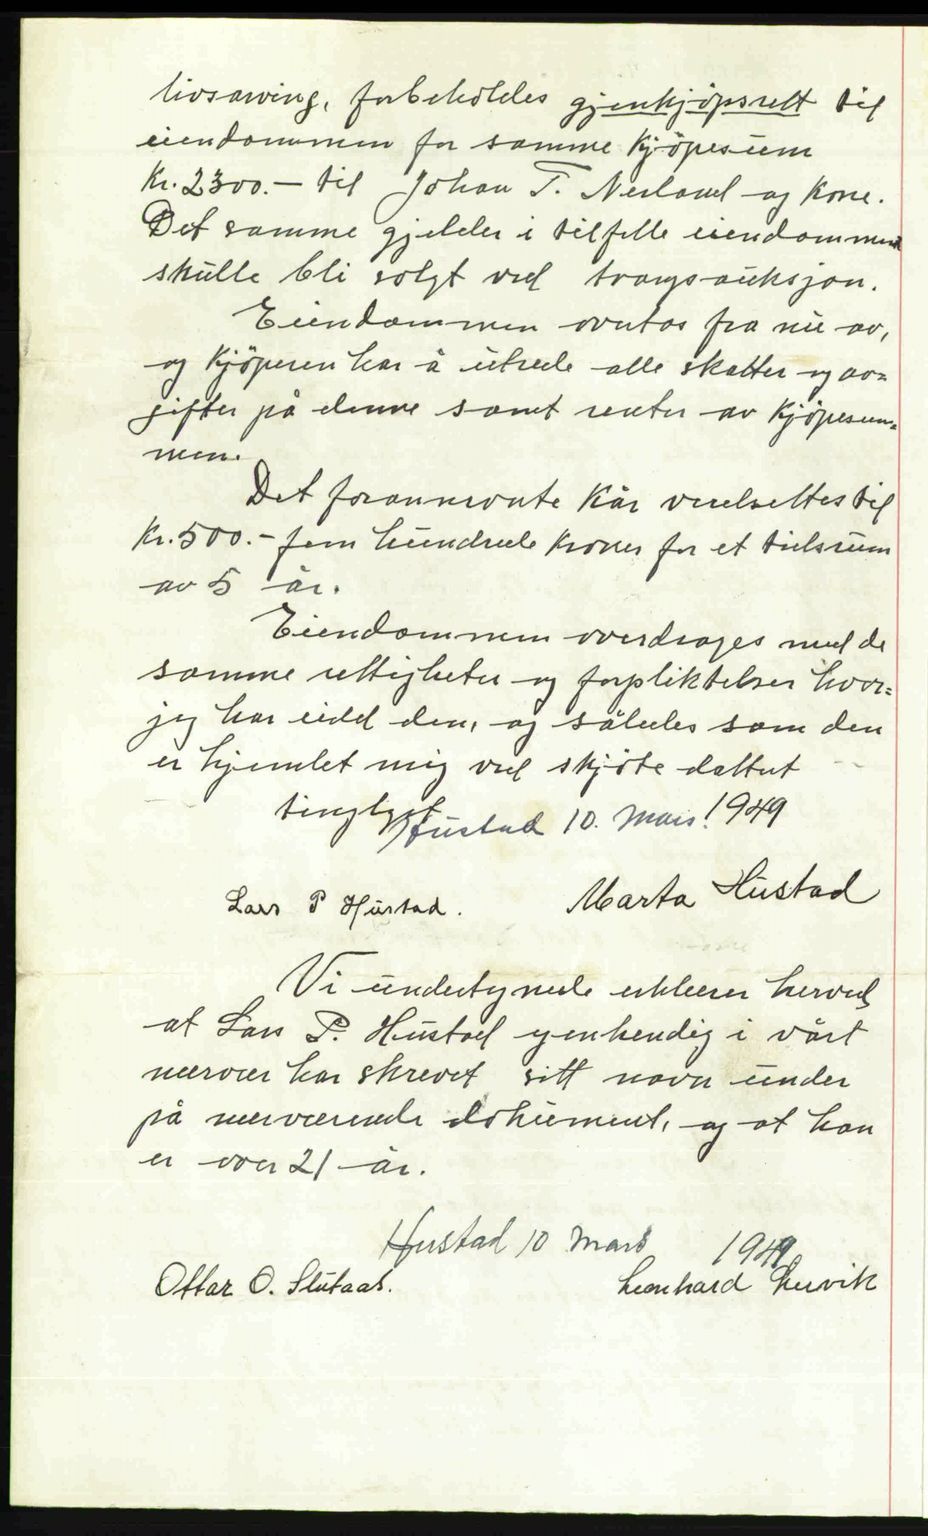 livsarving, forbeholdes gjenkjøpsrett til
eiendommen for samme kjöpesum
Kr. 2300.- til Johan T. Nesland og Kone.
Det samme gjelder i tilfelle eiendommen
skulle bli solgt ved tvangsauksjon.
Eiendommen overtas fra nu av,
og kjöperen har å utrede alle skatter og av=
gifter på denne samt renter av kjöpesum=
men.
Det forannevnte Kår verdsettes til
Kr. 500.- fem hundrede kroner for et tidsrum
av 5 år.
Eiendommen overdrages med de
samme rettigheter og forpliktelser hvor=
jeg har eied den, og således som den
er hjemlet mig ved skjöte dattert
tinglyst
Hustad 10. Mars. 1949
Lars P Hustad. Marta Hustad
Vi undertegnede erklærer herved,
at Lars P. Hustad egenhendig i vårt
nærvær har skrevet sitt navn under
på nærværende dokument, og at han
er over 21 år.
Hustad 10 Mars 1949
Ottar O. Stutaas. Leonhard Lervik